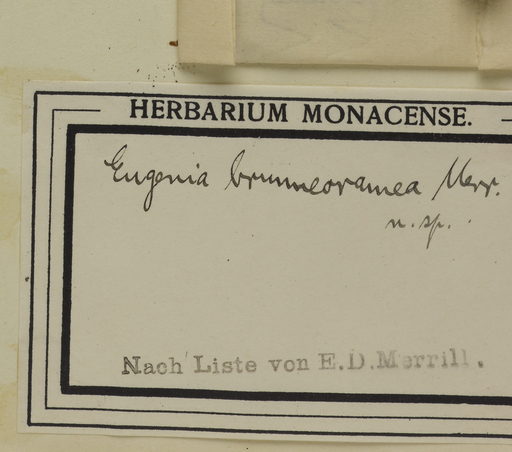 HERBARIUM MONACENSE.
Eugenia brunneoramea Merr.
n. sp.
Nach Liste von E.D.Merrill.